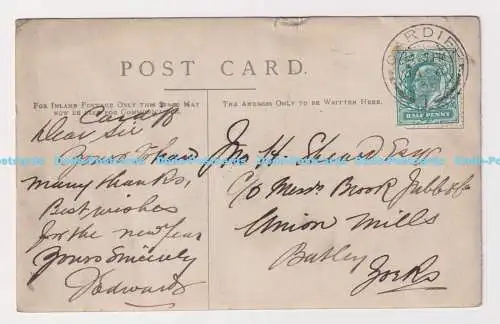 POST CARD.
FOR INLAND POSTAGE ONLY THIS SPACE MAY
NOW BE USED FOR COMMUNICATION.
THE ADDRESS ONLY TO BE WRITTEN HERE.
CARDIFF
HALF PENNY
Cardiff
Dear Sir
Yours to hand
many thanks,
Best wishes
for the new year
Yours Sincerely
D Edwards
Jno H. Esq
c/o Messrs Brook Jubb & Co
Union Mills
Batley
Yorks